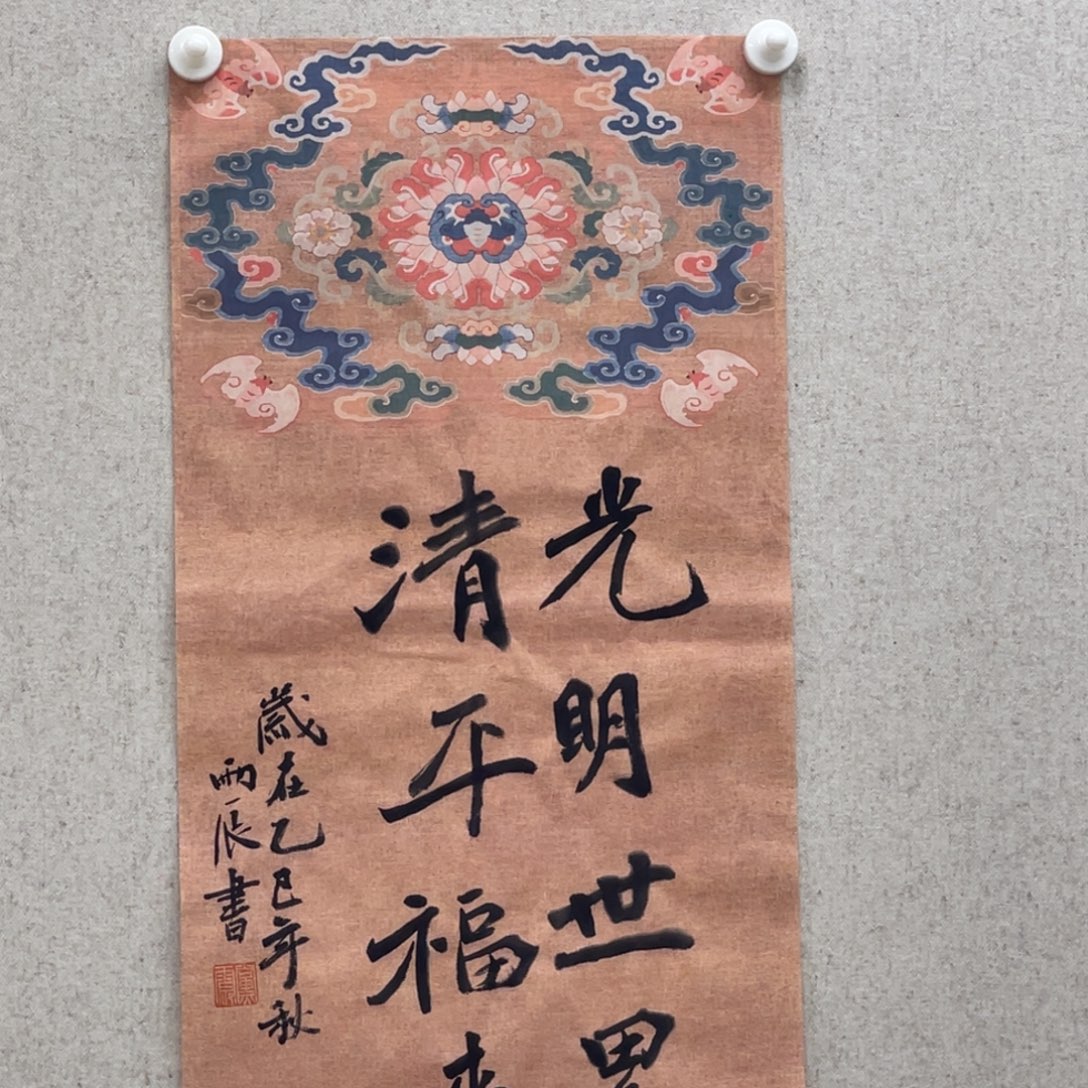 光明世界
清平福来
歲在乙巳年秋
雨辰書